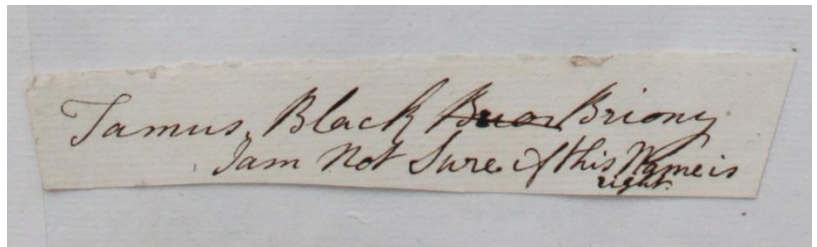 Tamus, Black Briony
I am Not Sure if this Name is
right.